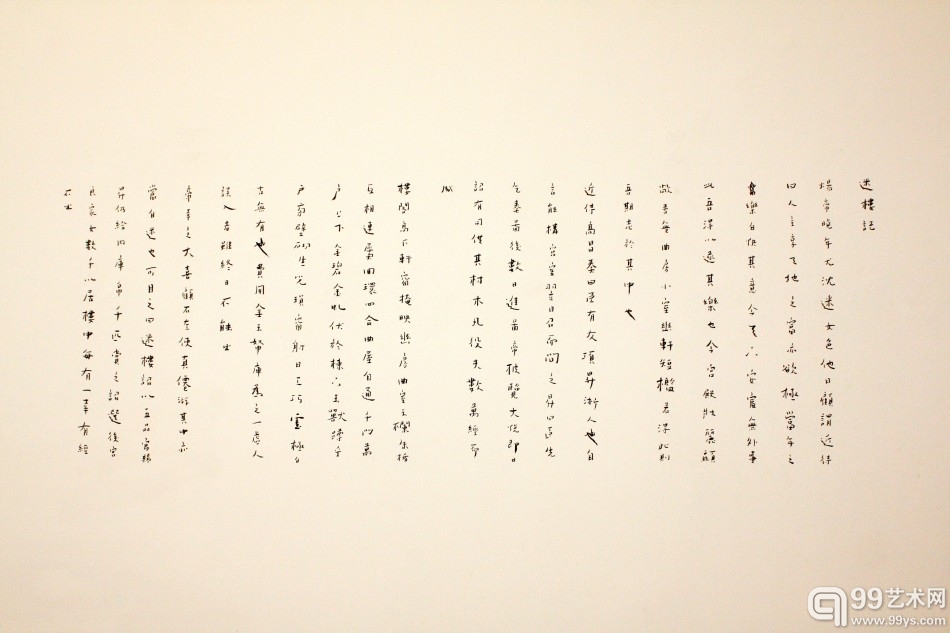 迷樓記
煬帝晚年尤沈迷女色他日顧謂近侍
曰人主享天地之富亦欲極當年之
樂自快其意今天下安富無外事
此吾得以遂其樂也今宮殿壯麗顯
敞苦無曲房小室幽軒短檻若得此則
吾期老於其中也
近侍高昌奏曰臣有友項昇浙人也自
言能構宮室翌日召而問之昇曰臣先
乞奏圖後數日進圖帝披覽大悅即日
詔有司供其材木凡役夫數萬經歲而
成
樓閣高下軒窗掩映幽房曲室玉欄朱楯
互相連屬回環四合曲屋自通千門萬
戶上下金碧金虬伏於棟下玉獸蹲乎
戶旁壁砌生光瑣窗射日工巧之極自
古無有也費用金玉帑庫為之一虛人
誤入者雖終日不能出
帝幸之大喜顧左右使真僊游其中亦
當自迷也可目之曰迷樓詔以五品官賜
昇仍給內庫帛千匹賞之詔選後宮
良家女數千以居樓中每有一幸有經
不出
99艺术网
www.99ys.com